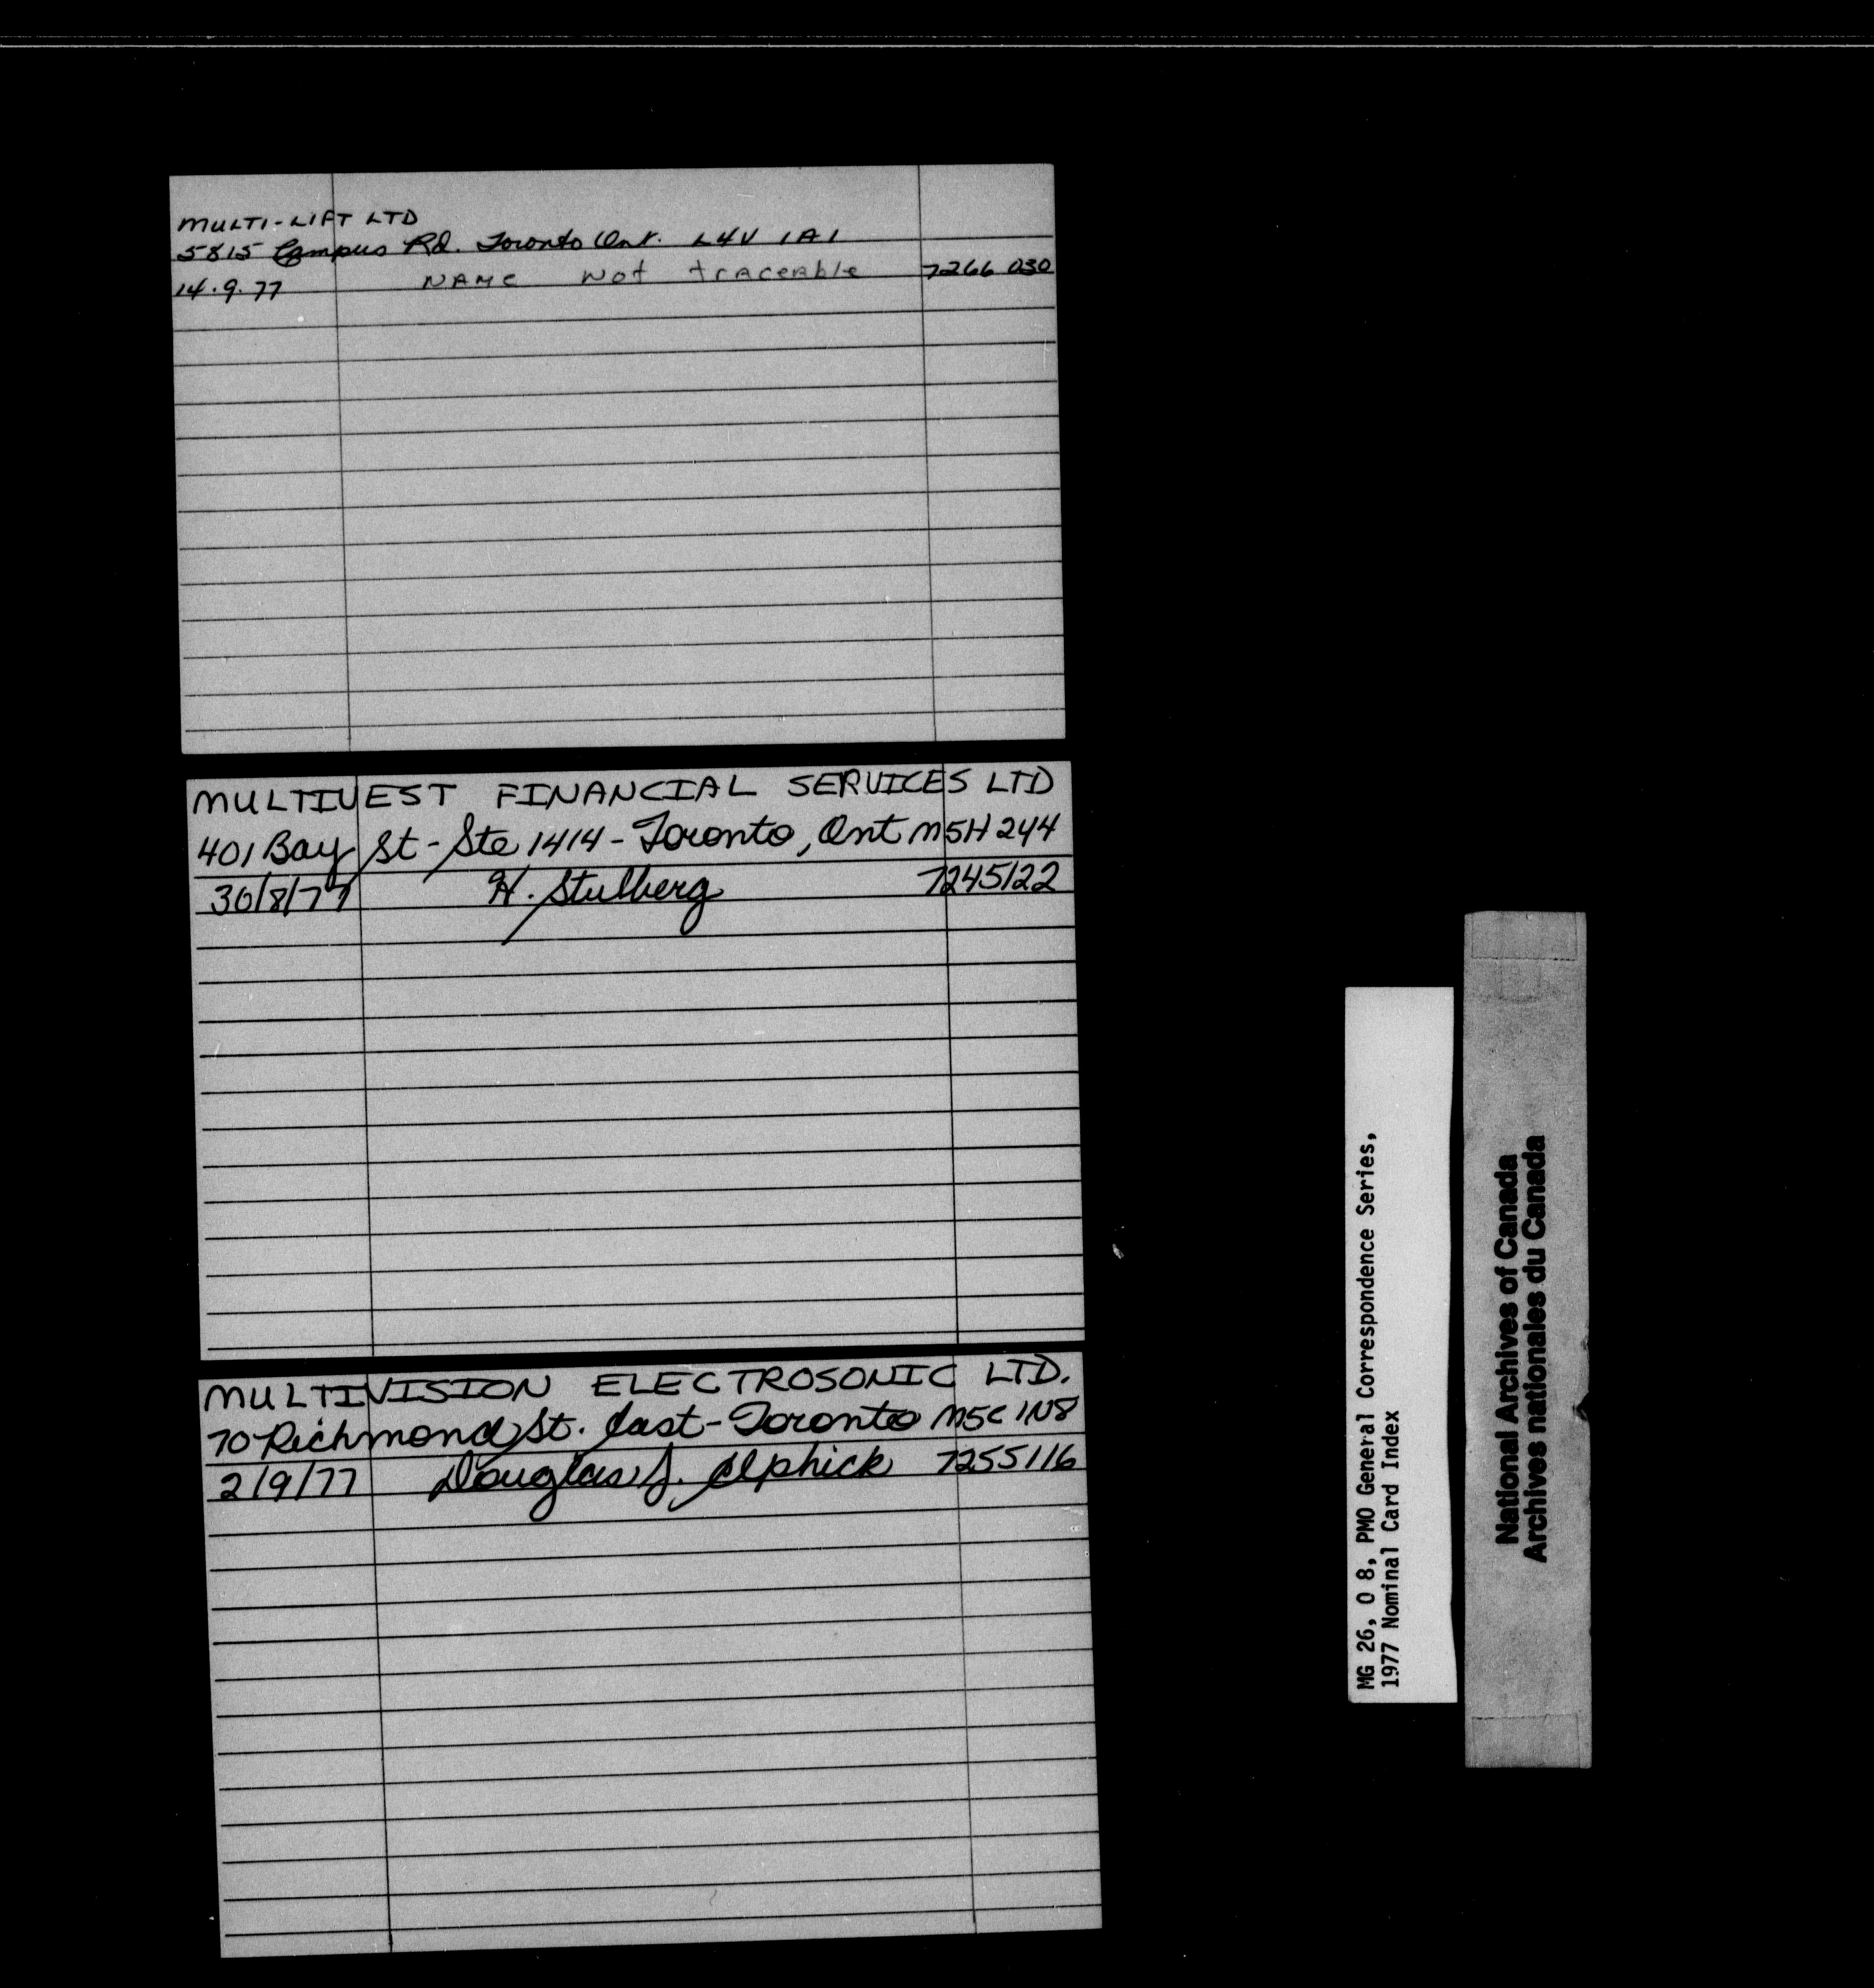 MULTI-LIFT LTD
5815 Campus Rd. Toronto Ont. L4V 1A1
14.9.77 NAME Not traceable 7266 030
MULTIVEST FINANCIAL SERVICES LTD
401 Bay St - Ste 1414 - Toronto, Ont M5H 2Y4
30/8/77 H. Stulberg 7245122
MULTIVISION ELECTROSONIC LTD.
70 Richmond St. East - Toronto M5C 1N8
2/9/77 Douglas J. Elphick 7255116
MG 26, O 8, PMO General Correspondence Series,
1977 Nominal Card Index
National Archives of Canada
Archives nationales du Canada